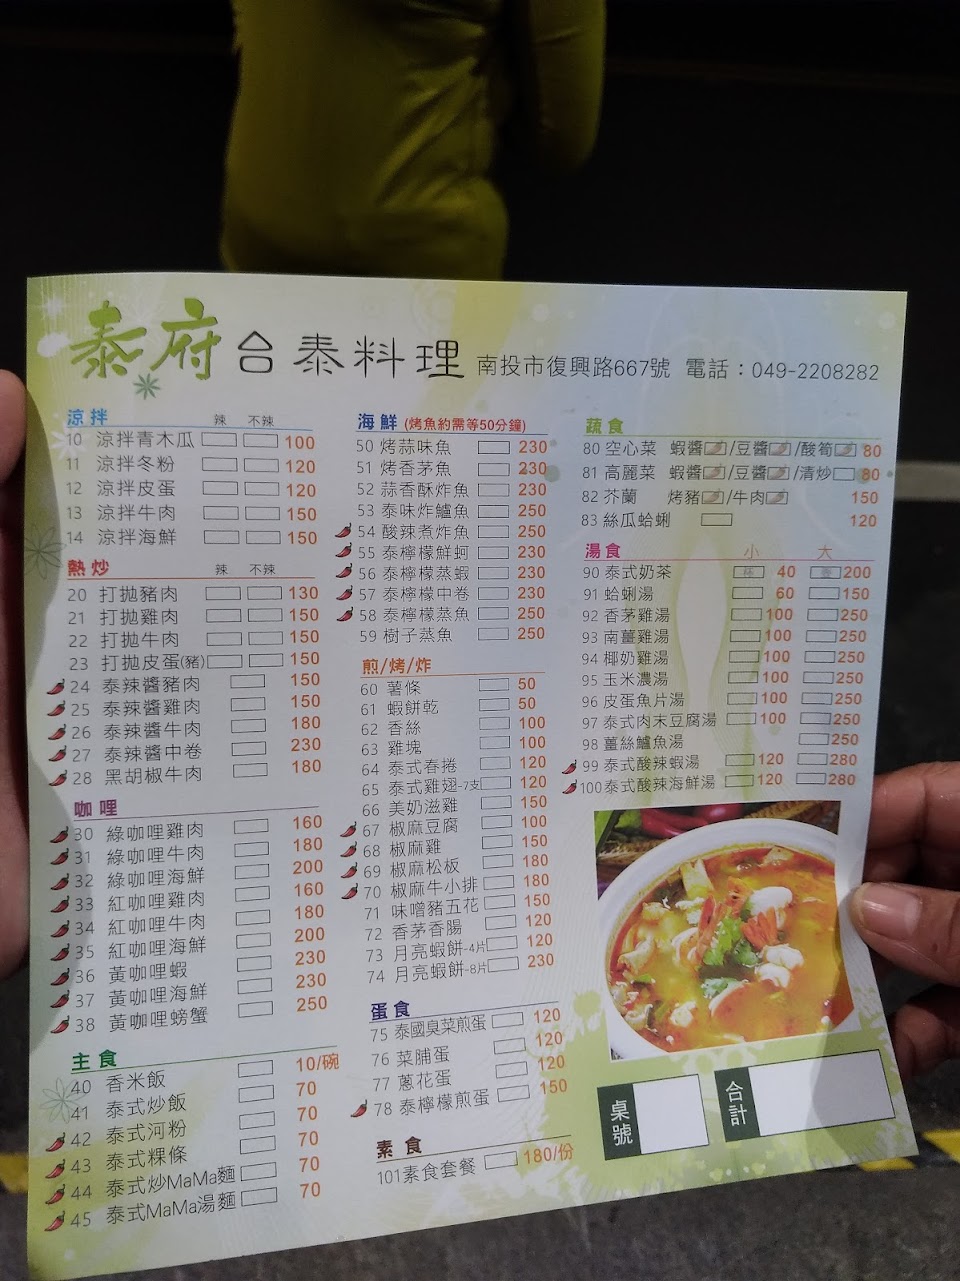 泰府 台泰料理 南投市復興路667號 電話：049-2208282
涼拌 辣 不辣
10 涼拌青木瓜 100
11 涼拌冬粉 120
12 涼拌皮蛋 120
13 涼拌牛肉 150
14 涼拌海鮮 150
熱炒 辣 不辣
20 打拋豬肉 130
21 打拋雞肉 150
22 打拋牛肉 150
23 打拋皮蛋(豬) 150
24 泰辣醬豬肉 150
25 泰辣醬雞肉 150
26 泰辣醬牛肉 180
27 泰辣醬中卷 230
28 黑胡椒牛肉 180
咖哩
30 綠咖哩雞肉 160
31 綠咖哩牛肉 180
32 綠咖哩海鮮 200
33 紅咖哩雞肉 160
34 紅咖哩牛肉 180
35 紅咖哩海鮮 200
36 黃咖哩蝦 230
37 黃咖哩海鮮 230
38 黃咖哩螃蟹 250
主食
40 香米飯 10/碗
41 泰式炒飯 70
42 泰式河粉 70
43 泰式粿條 70
44 泰式炒MaMa麵 70
45 泰式MaMa湯麵 70
海鮮 (烤魚約需等50分鐘)
50 烤蒜味魚 230
51 烤香茅魚 230
52 蒜香酥炸魚 230
53 泰味炸鱸魚 250
54 酸辣煮炸魚 250
55 泰檸檬鮮蚵 230
56 泰檸檬蒸蝦 230
57 泰檸檬中卷 230
58 泰檸檬蒸魚 250
59 樹子蒸魚 250
煎/烤/炸
60 薯條 50
61 蝦餅乾 50
62 香絲 100
63 雞塊 100
64 泰式春捲 120
65 泰式雞翅-7支 120
66 美奶滋雞 150
67 椒麻豆腐 100
68 椒麻雞 150
69 椒麻松板 180
70 椒麻牛小排 180
71 味噌豬五花 150
72 香茅香腸 120
73 月亮蝦餅-4片 120
74 月亮蝦餅-8片 230
蛋食
75 泰國臭菜煎蛋 120
76 菜脯蛋 120
77 蔥花蛋 120
78 泰檸檬煎蛋 150
素食
101素食套餐 180/份
蔬食
80 空心菜 蝦醬/豆醬/酸筍 80
81 高麗菜 蝦醬/豆醬/清炒 80
82 芥蘭 烤豬/牛肉 150
83 絲瓜蛤蜊 120
湯食 小 大
90 泰式奶茶 杯 40 壺 200
91 蛤蜊湯 60 150
92 香茅雞湯 100 250
93 南薑雞湯 100 250
94 椰奶雞湯 100 250
95 玉米濃湯 100 250
96 皮蛋魚片湯 100 250
97 泰式肉末豆腐湯 100 250
98 薑絲鱸魚湯 250
99 泰式酸辣蝦湯 120 280
100泰式酸辣海鮮湯 120 280
桌號
合計